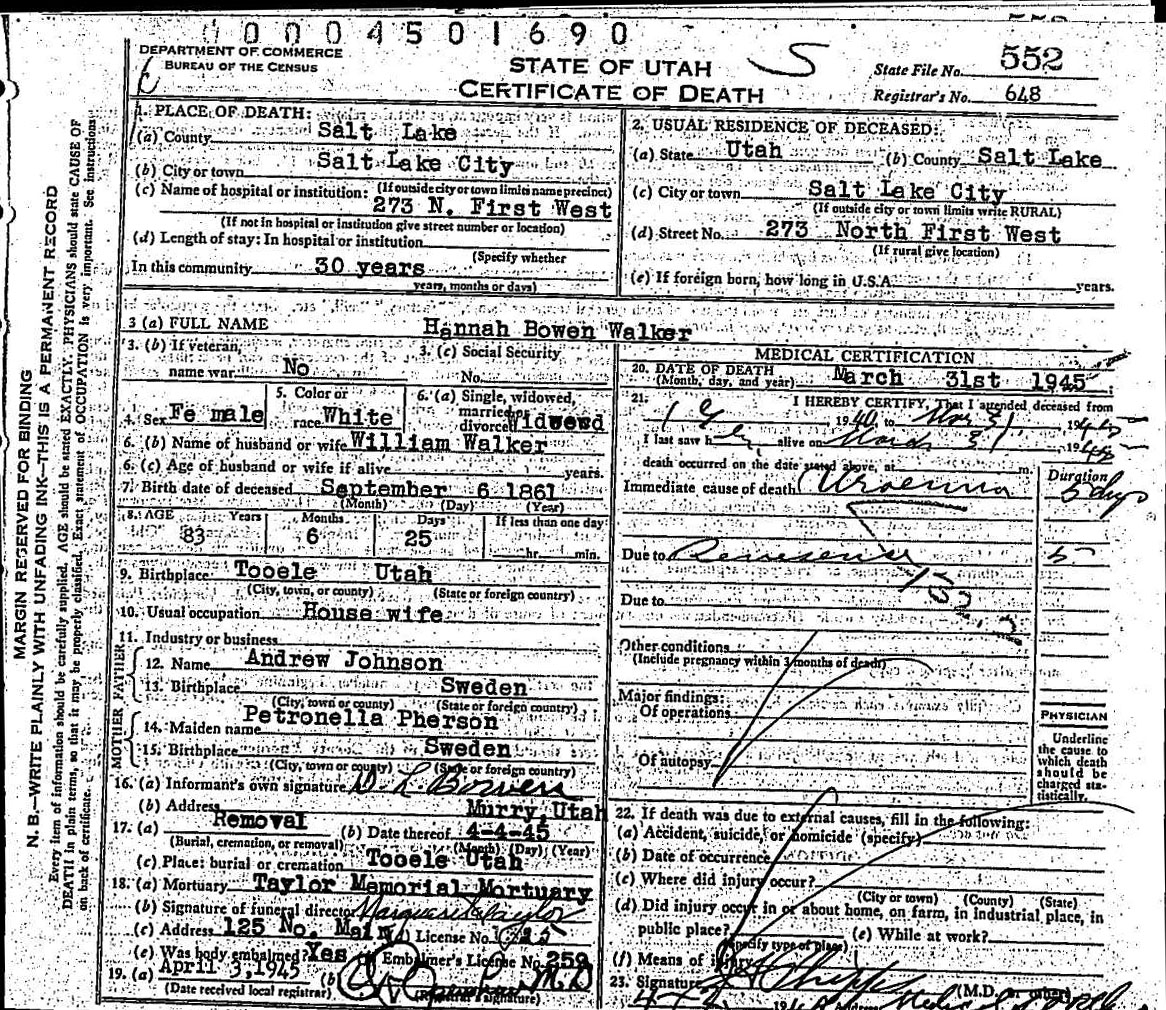 0 0 0 0 4 5 0 1 6 9 0
DEPARTMENT OF COMMERCE
BUREAU OF THE CENSUS
STATE OF UTAH
CERTIFICATE OF DEATH
State File No. 552
Registrar's No. 648
MARGIN RESERVED FOR BINDING
N. B.—WRITE PLAINLY WITH UNFADING INK—THIS IS A PERMANENT RECORD
Every item of information should be carefully supplied. AGE should be stated EXACTLY. PHYSICIANS should state CAUSE OF
DEATH in plain terms, so that it may be properly classified. Exact statement of OCCUPATION is very important. See instructions
on back of certificate.
1. PLACE OF DEATH:
(a) County Salt Lake
(b) City or town Salt Lake City
(If outside city or town limits name precinct)
(c) Name of hospital or institution:
273 N. First West
(If not in hospital or institution give street number or location)
(d) Length of stay: In hospital or institution
(Specify whether
In this community 30 years
years, months or days)
2. USUAL RESIDENCE OF DECEASED:
(a) State Utah (b) County Salt Lake
(c) City or town Salt Lake City
(If outside city or town limits write RURAL)
(d) Street No. 273 North First West
(If rural give location)
(e) If foreign born, how long in U.S.A. years.
3 (a) FULL NAME Hannah Bowen Walker
3. (b) If veteran,
name war No
3. (c) Social Security
No.
4. Sex Fe male
5. Color or
race White
6. (a) Single, widowed,
married,
divorced Widowed
6. (b) Name of husband or wife William Walker
6. (c) Age of husband or wife if alive years.
7. Birth date of deceased September 6 1861
(Month) (Day) (Year)
8. AGE Years Months Days If less than one day
83 6 25 hr. min.
9. Birthplace Tooele Utah
(City, town, or county) (State or foreign country)
10. Usual occupation House wife
11. Industry or business
FATHER
12. Name Andrew Johnson
13. Birthplace Sweden
(City, town or county) (State or foreign country)
MOTHER
14. Maiden name Petronella Pherson
15. Birthplace Sweden
(City, town or county) (State or foreign country)
16. (a) Informant's own signature D. L. Bowen
(b) Address Murry, Utah
17. (a) Removal (b) Date thereof 4-4-45
(Burial, cremation, or removal) (Month) (Day) (Year)
(c) Place: burial or cremation Tooele Utah
18. (a) Mortuary Taylor Memorial Mortuary
(b) Signature of funeral director Taylor
(c) Address 125 No. Main (d) License No.
(e) Was body embalmed? Yes Embalmer's License No. 259
19. (a) April 3, 1945 (b) M D
(Date received local registrar) (Registrar's signature)
MEDICAL CERTIFICATION
20. DATE OF DEATH
(Month, day, and year) March 31st 1945
21. I HEREBY CERTIFY, That I attended deceased from
1940, to Mar 31, 1945
I last saw h alive on March 31 1945
death occurred on the date stated above, at m.
Duration
Immediate cause of death Uraemia 5 days
Due to 5
Due to
Other conditions
(Include pregnancy within 3 months of death)
Major findings:
Of operations
Of autopsy
PHYSICIAN
Underline
the cause to
which death
should be
charged sta-
tistically.
22. If death was due to external causes, fill in the following:
(a) Accident, suicide, or homicide (specify)
(b) Date of occurrence
(c) Where did injury occur?
(City or town) (County) (State)
(d) Did injury occur in or about home, on farm, in industrial place, in
public place? (e) While at work?
(Specify type of place)
(f) Means of injury
23. Signature (M.D. or other)